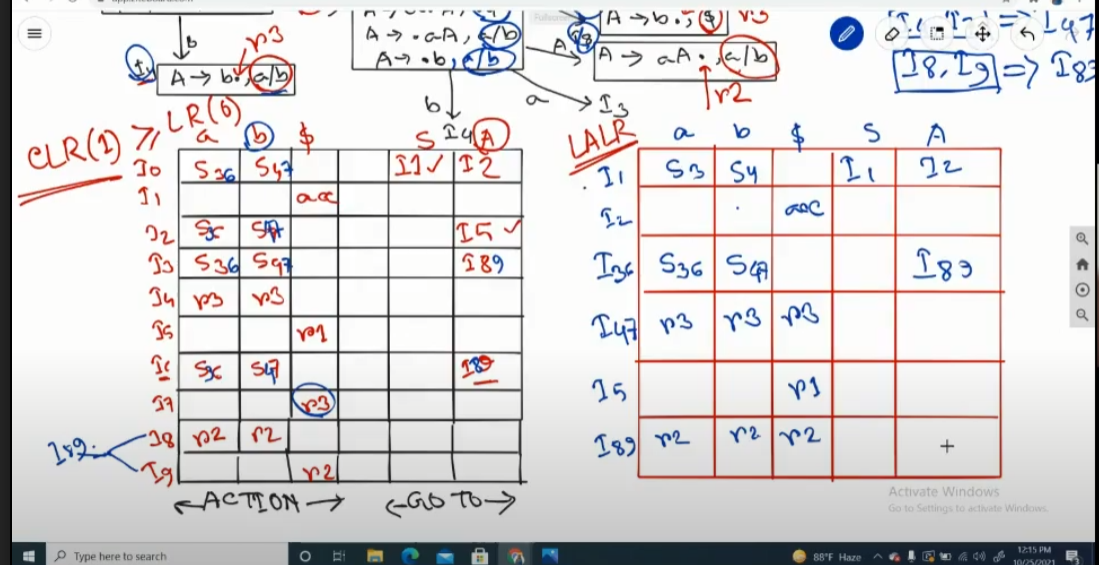 A → .aA, a/b
A → .b, a/b
A → b., $ r3
I4, I7 => I47
b r3
A → b., a/b
A I8
A → aA ., a/b
I8, I9 => I89
b a I3
r2
I4
CLR(1) ≥ LR(0)
a b $ S A
I0 S36 S47 I1 ✓ I2
I1 acc
I2 I5 ✓
I3 S36 S47 I89
I4 r3 r3
I5 r1
I6 S47 I89
I7 r3
I89
I8 r2 r2
I9 r2
←ACTION→ ←GO TO→
LALR
a b $ S A
I1 S3 S4 I1 I2
I2 acc
I36 S36 S47 I89
I47 r3 r3 r3
I5 r1
I89 r2 r2 r2
Activate Windows
Go to Settings to activate Windows.
Type here to search
88°F Haze
12:15 PM
10/25/2021